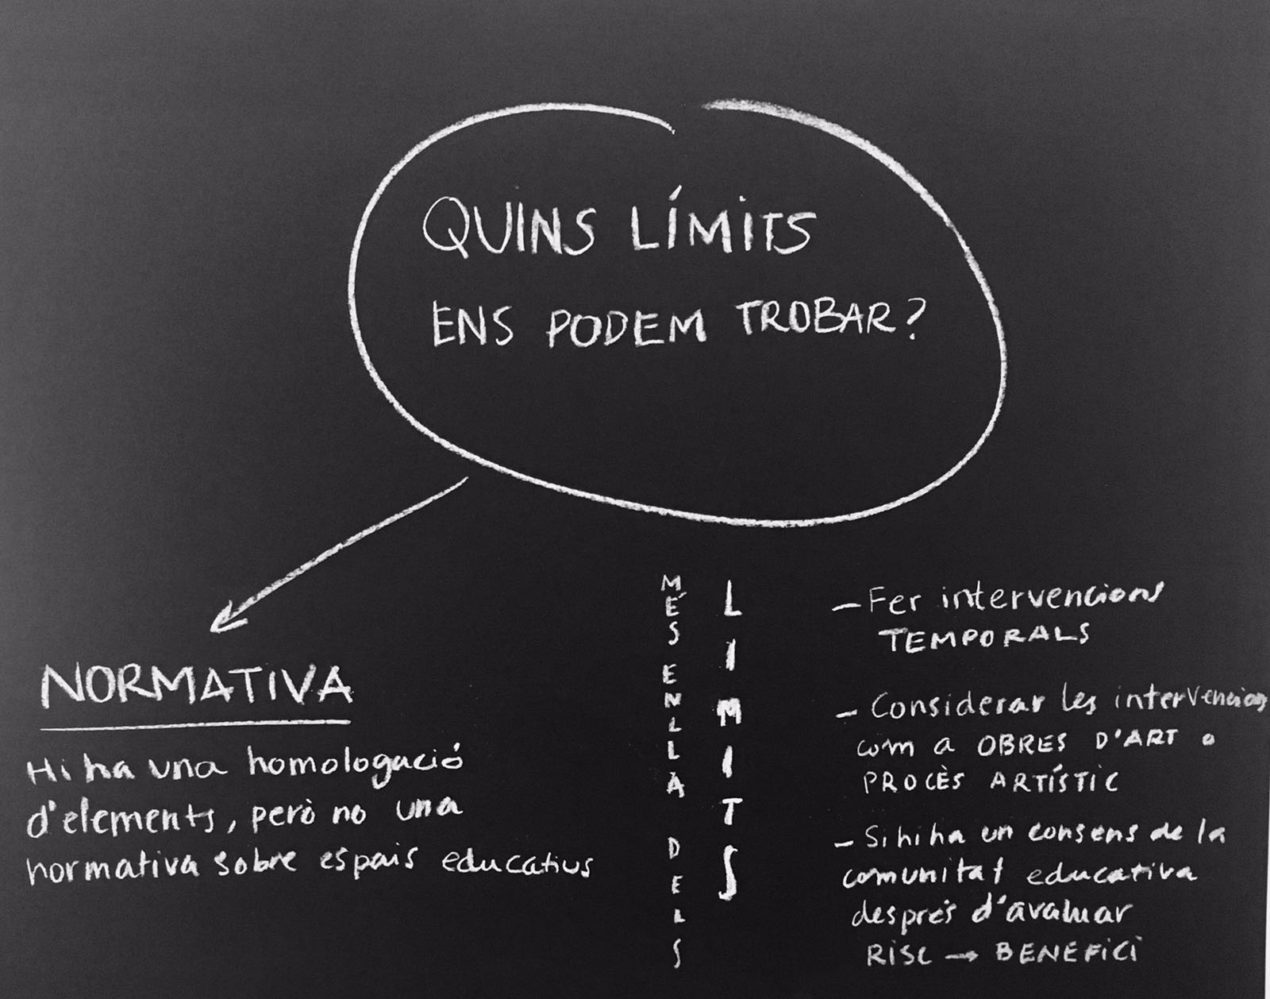 QUINS LÍMITS
ENS PODEM TROBAR?
NORMATIVA
Hi ha una homologació
d'elements, però no una
normativa sobre espais educatius
MÉS ENLLÀ DELS
LIMITS
- Fer intervencions
TEMPORALS
- Considerar les intervencions
com a OBRES D'ART o
PROCÈS ARTÍSTIC
- Si hi ha un consens de la
comunitat educativa
desprès d'avaluar
RISC → BENEFICI